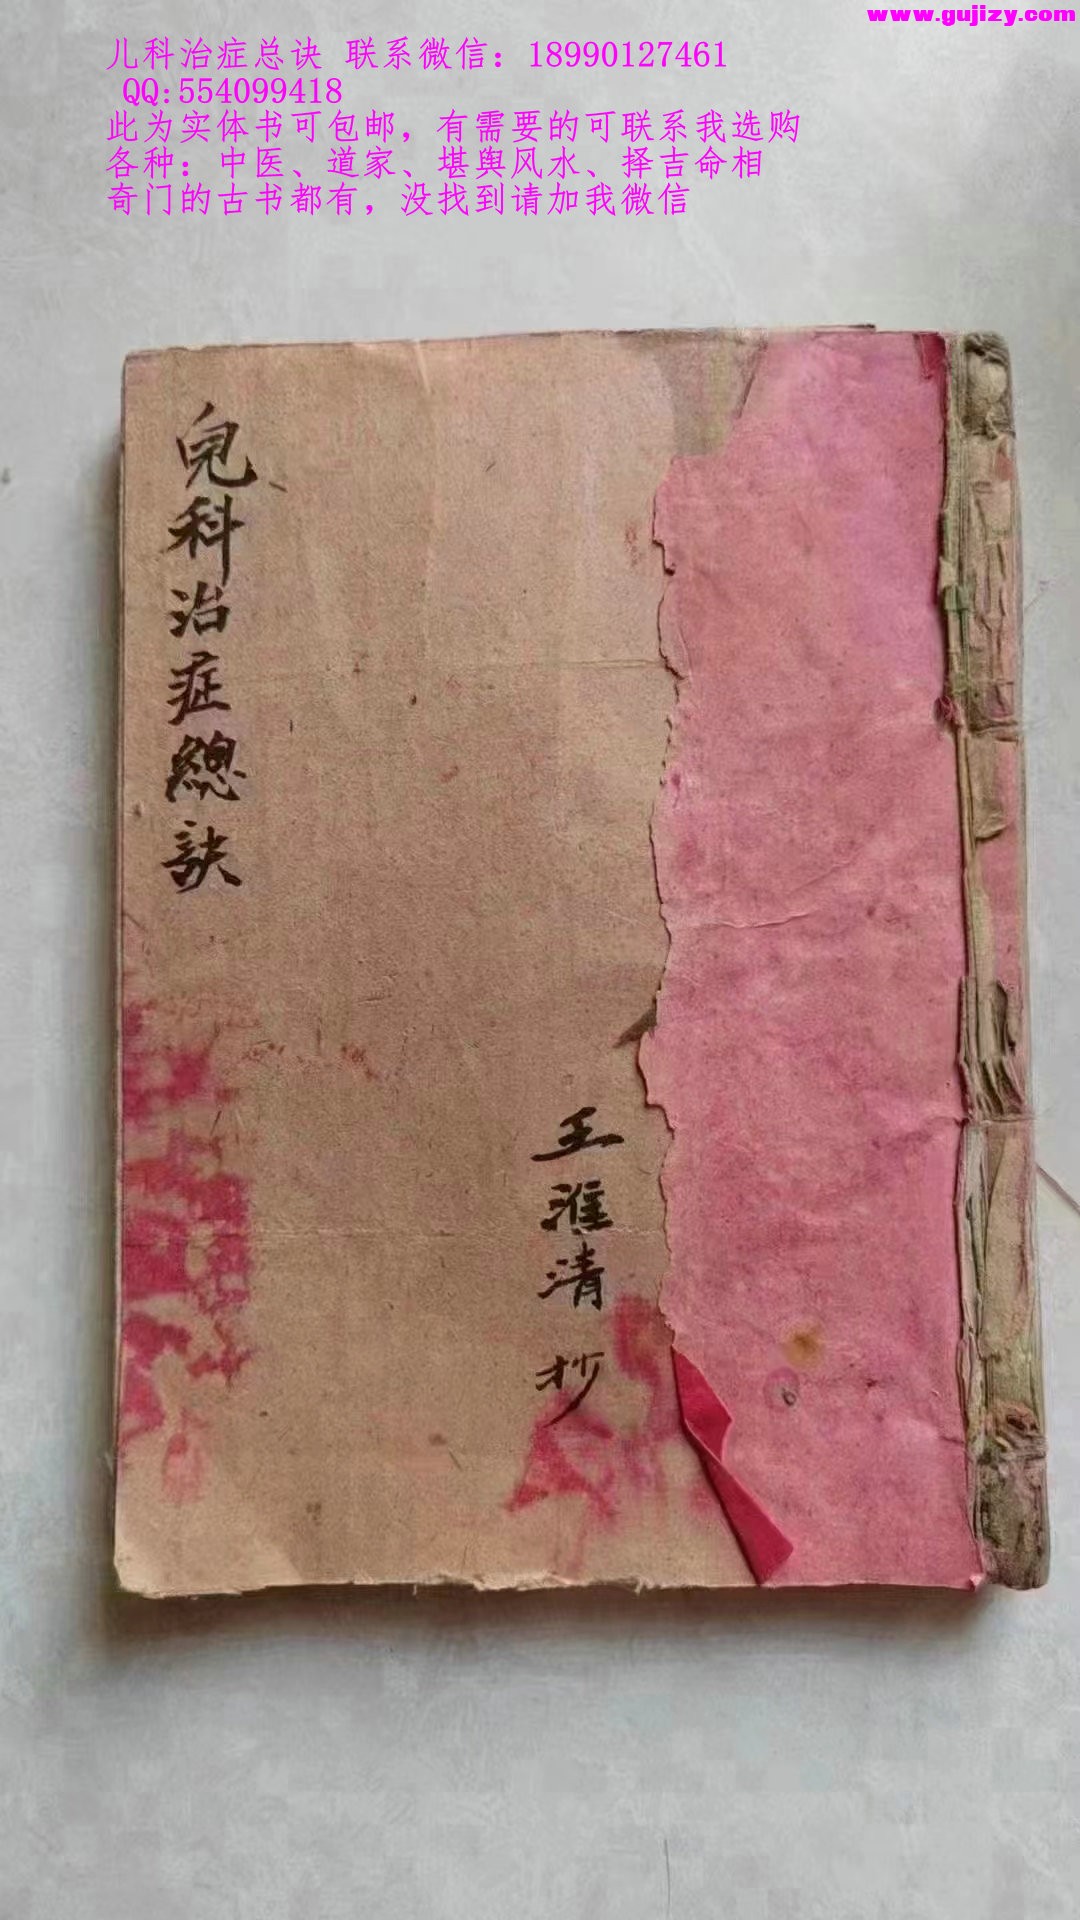 www.gujizy.com
儿科治症总诀 联系微信：18990127461
QQ:554099418
此为实体书可包邮，有需要的可联系我选购
各种：中医、道家、堪舆风水、择吉命相
奇门的古书都有，没找到请加我微信
兒科治症總訣
王淮清 抄